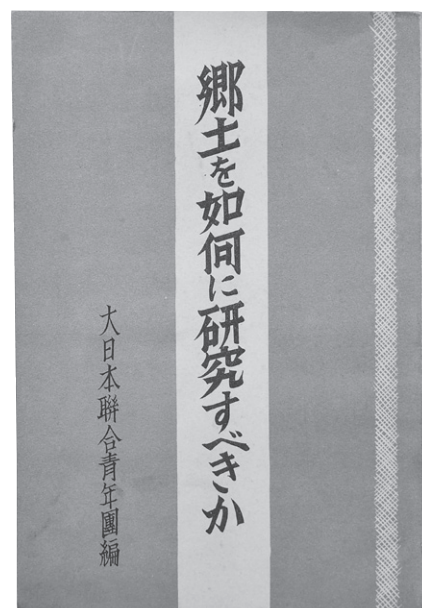 郷土を如何に研究すべきか
大日本聯合青年團編